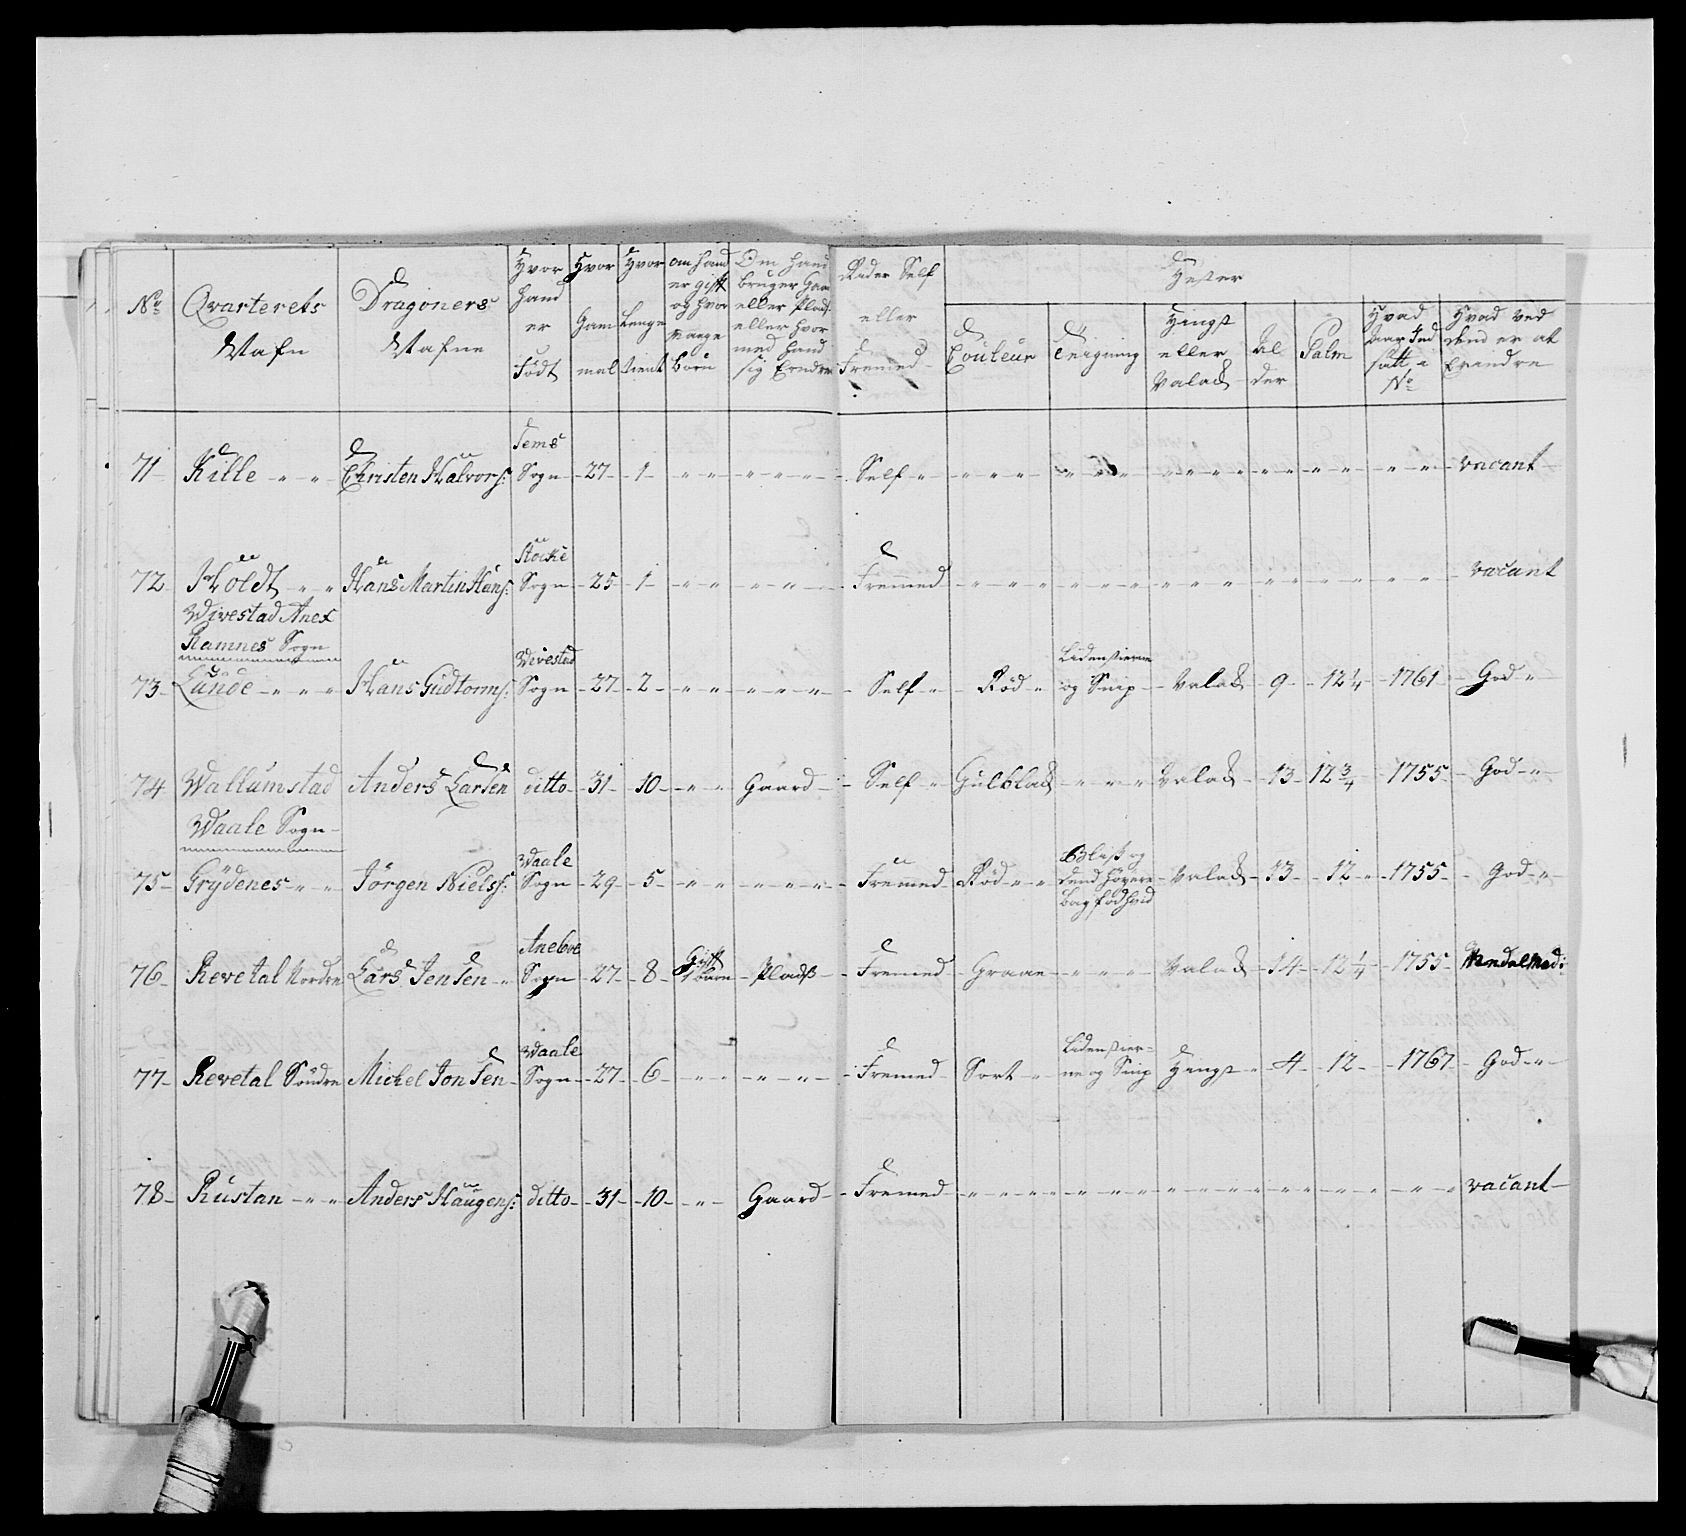 No
Qvarterets Nafn
Dragoners Nafne
Hvor hand er Födt
Hvor Gam mel
Hvor Lenge tient
om hand er gift og hvor mange börn
Om hand bruger Gaar eller Plads eller hvor med hand sig Ernærer
Rider Self eller Fremed
Hester
Couleur
Teigning
Hingst eller Valack
Al der
Palm
Hvad Aar Ind satt No
Hvad ved dend er at Erindre
71 Kille Christen Halvors: Sems Sogn 27 1 Self vacant
72 Holdt Hans Martin Hans: Stocke Sogn 25 1 Fremmed vacant
Wivestad Anex
Ramnes Sogn
73 Lunde Hans Gudtorms: Wivestad Sogn 27 2 Self Röd Liden stierne og Snip Valack 9 12 1/4 1761 God
74 Wallumstad Anders Larsen ditto 31 10 Gaard Self Gulblack Valack 13 12 3/4 1755 God
Waale Sogn
75 Grydenes Jörgen Niels: Waale Sogn 29 5 Fremed Röd Bliss og dend höyere bag fod hvid Valack 13 12 1755 God
76 Revetal Nordre Lars Jensen Aneboe Sogn 27 8 Gift 1 barn Plads Fremed Graae Valack 14 12 1/4 1755
77 Revetal Söndre Michel Jonsen Waale Sogn 27 6 Fremed Sort Liden stier- ne og Snip Hingst 4 12 1767 God
78 Rustan Anders Haugens: ditto 31 10 Gaard Fremed vacant